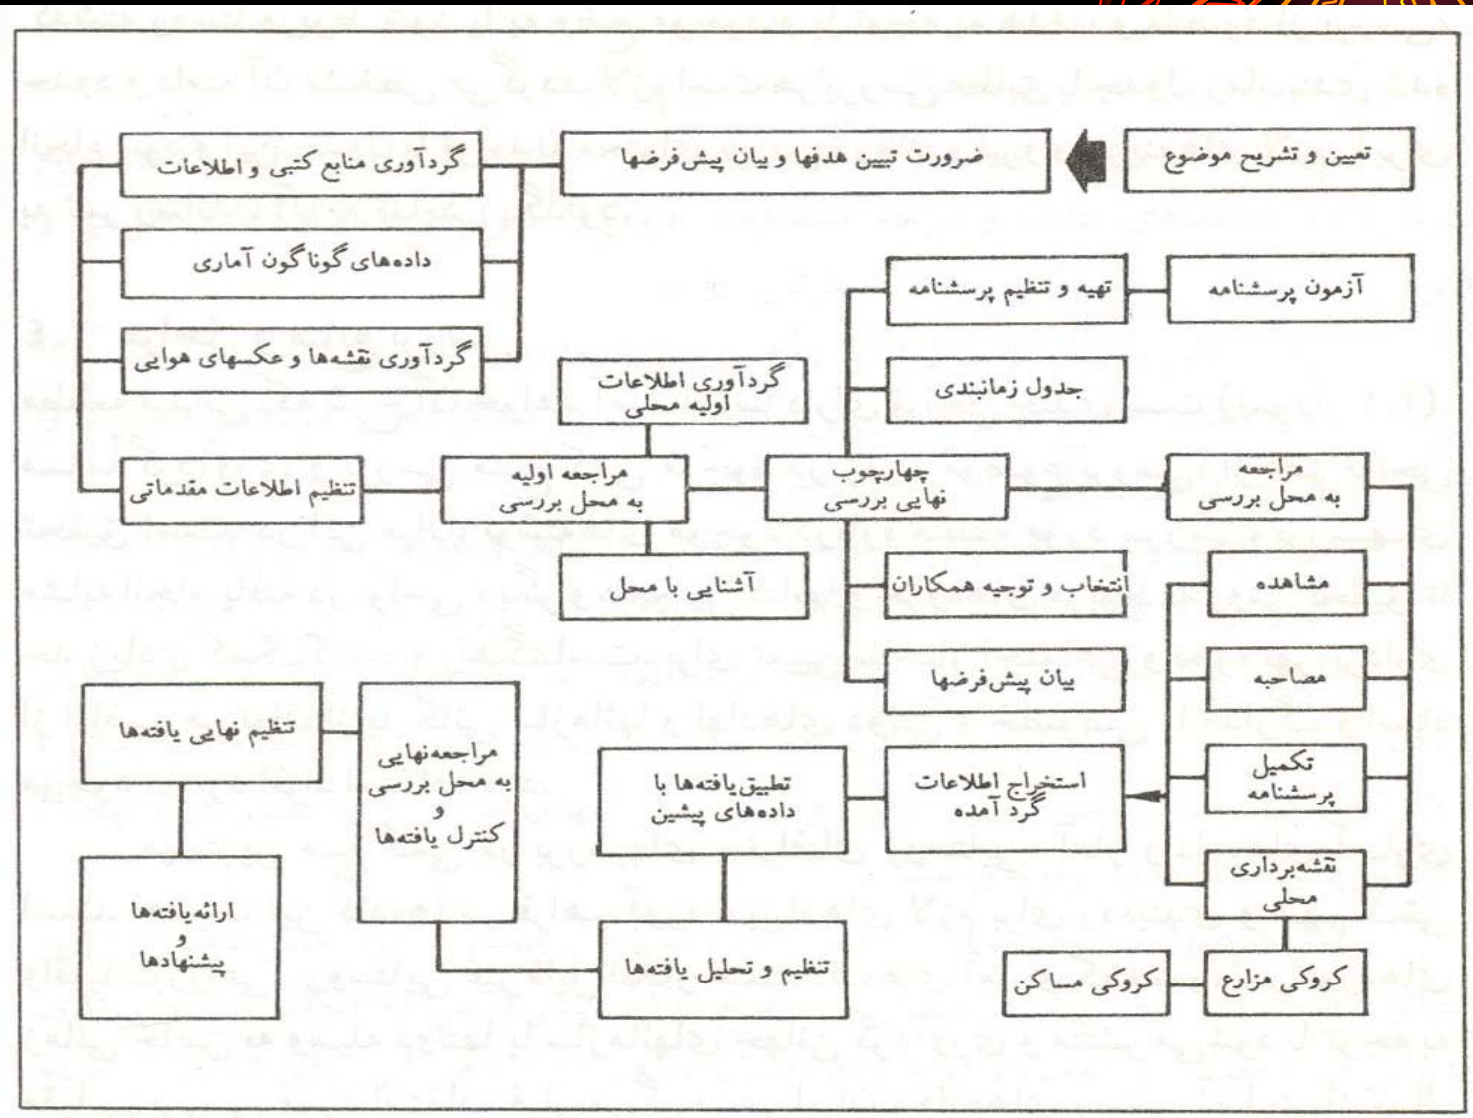 تعیین و تشریح موضوع
ضرورت تبیین هدفها و بیان پیش‌فرضها
گردآوری منابع کتبی و اطلاعات
داده‌های گوناگون آماری
گردآوری نقشه‌ها و عکسهای هوایی
تنظیم اطلاعات مقدماتی
گردآوری اطلاعات
اولیه محلی
مراجعه اولیه
به محل بررسی
آشنایی با محل
آزمون پرسشنامه
تهیه و تنظیم پرسشنامه
جدول زمانبندی
چهارچوب
نهایی بررسی
انتخاب و توجیه همکاران
بیان پیش‌فرضها
مراجعه
به محل بررسی
مشاهده
مصاحبه
تکمیل
پرسشنامه
نقشه‌برداری
محلی
کروکی مزارع
کروکی مساکن
استخراج اطلاعات
گرد آمده
تطبیق یافته‌ها با
داده‌های پیشین
تنظیم و تحلیل یافته‌ها
مراجعه‌نهایی
به محل بررسی
و
کنترل یافته‌ها
تنظیم نهایی یافته‌ها
ارائه‌یافته‌ها
و
پیشنهادها